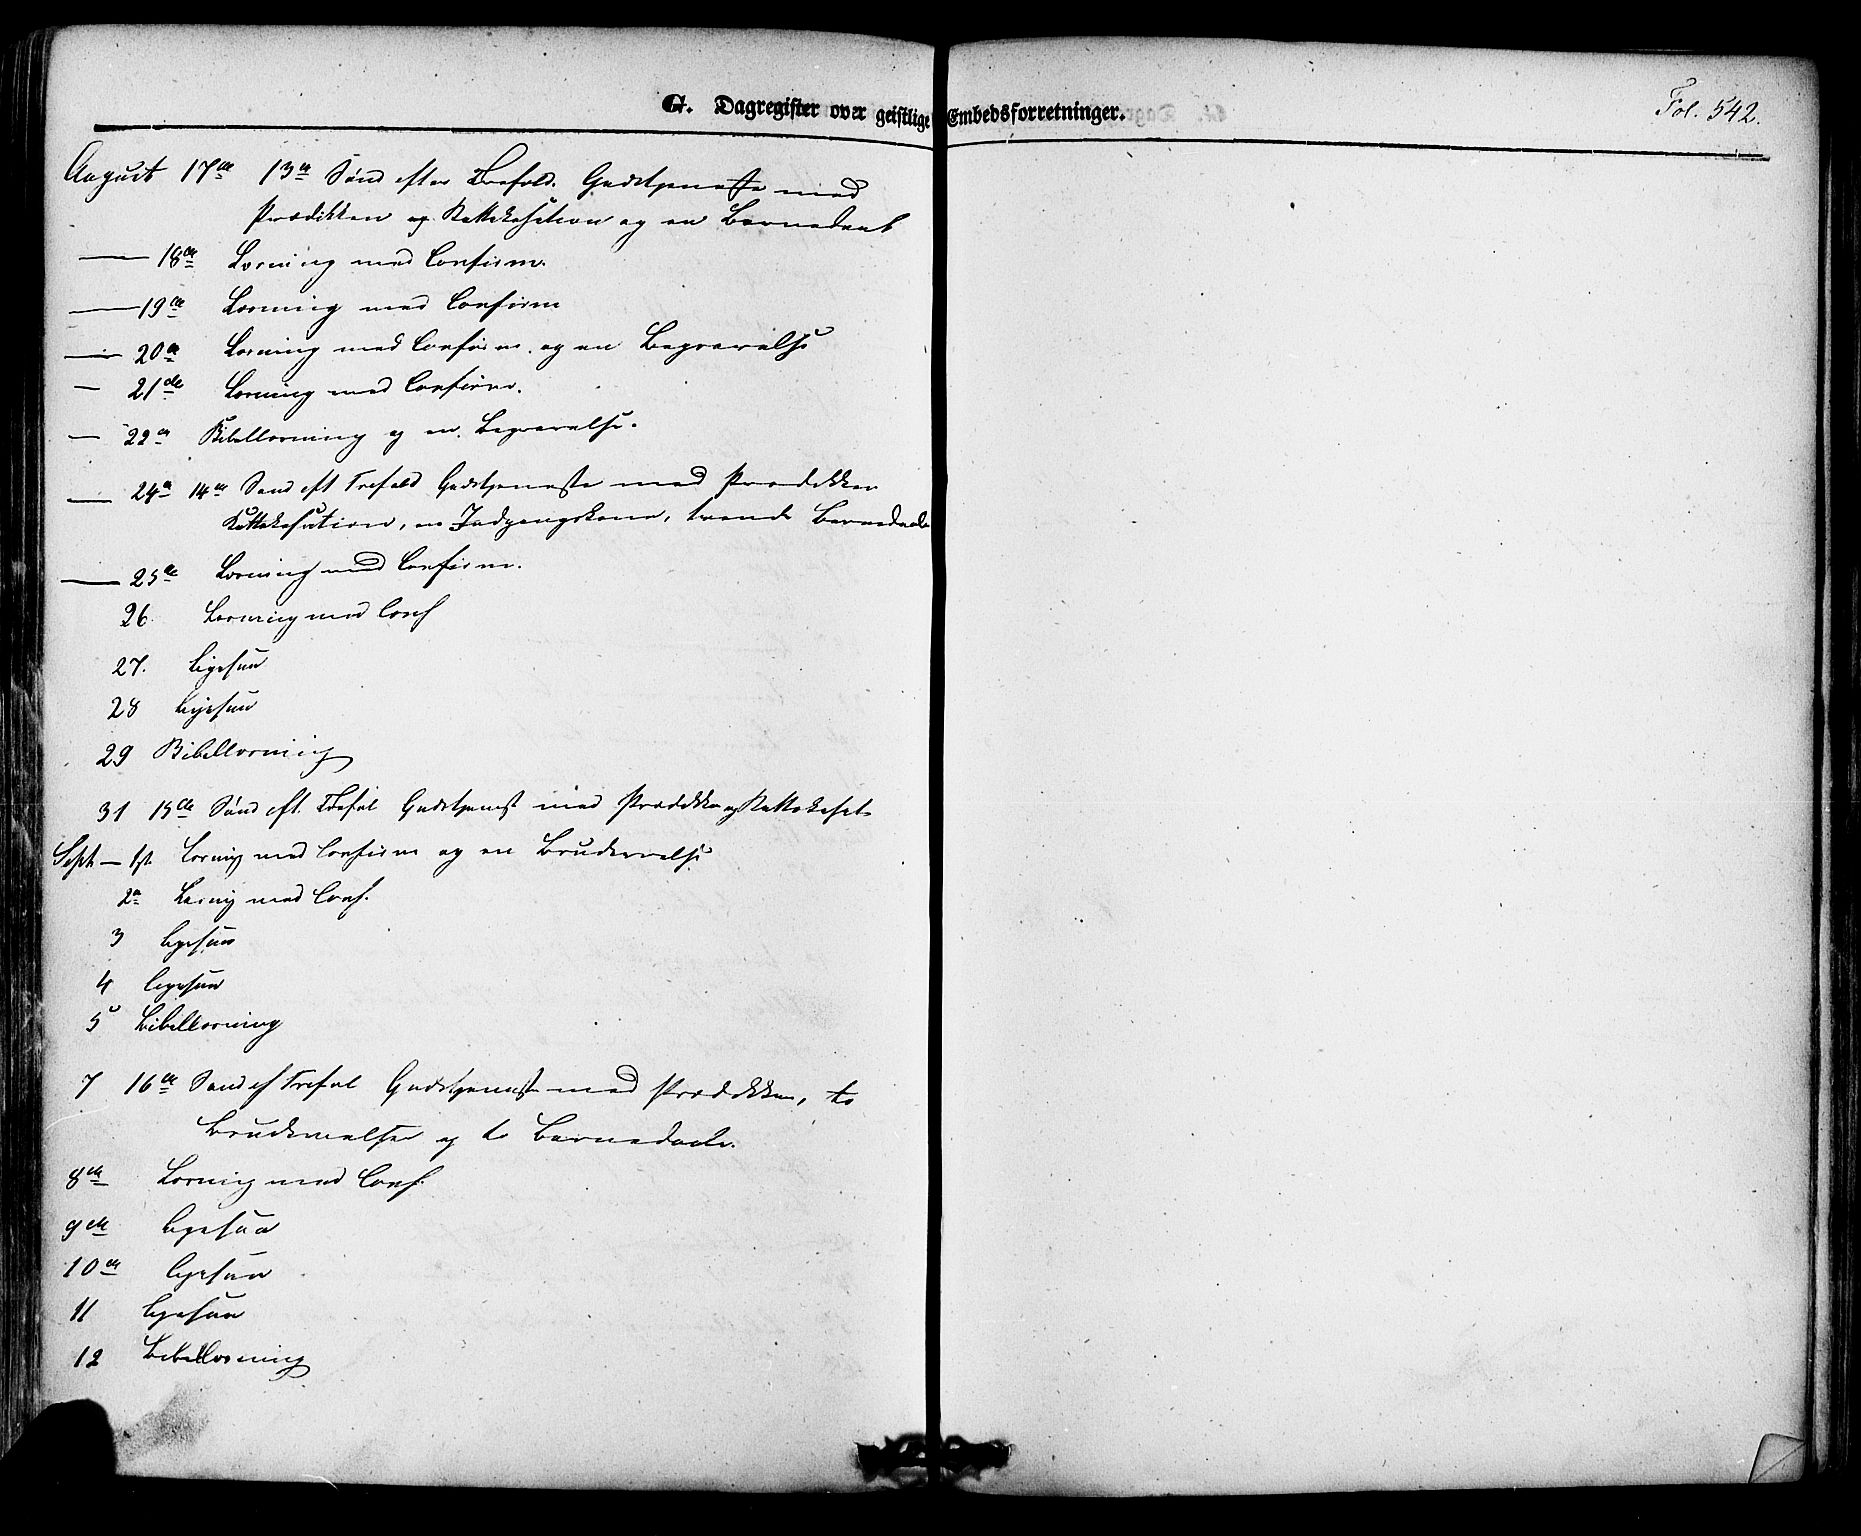 G. Dagregister over geistlige Embedsforretninger.
Fol. 542.
August 17de 13de Sønd efter Trefold. Gudstjeneste med
Prædikken og Kattekesation og en Barnedaab
— 18de Læsning med Confirm.
— 19de Læsning med Confirm
— 20de Læsning med Confirm. og en Begravelse
— 21de Læsning med Confirm.
— 22de Bibellæsning og en Begravelse.
— 24de 14de Sønd eft Trefold Gudstjeneste med Prædikken
Kattekesation, en Indgangskone, trende Barnedaab
— 25de Læsning med Confirm.
26. Læsning med Conf
27. Ligesaa
28 Ligesaa
29 Bibellæsning
31 15de Sønd eft. Trefol Gudstjenest med Prædikken og Kattekesat
Sept — 1st Læsnig med Confirm og en Brudevielse
2de Læsnig med Conf.
3 Ligesaa
4 Ligesaa
5 Bibellæsning
7 16de Sønd ef Trefol Gudstjenest med Prædikken, to
Brudevielser og to Barnedaab.
8de Læsnig med Conf.
9de Ligesaa
10de Ligesaa
11 Ligesaa
12 Bibellæsning